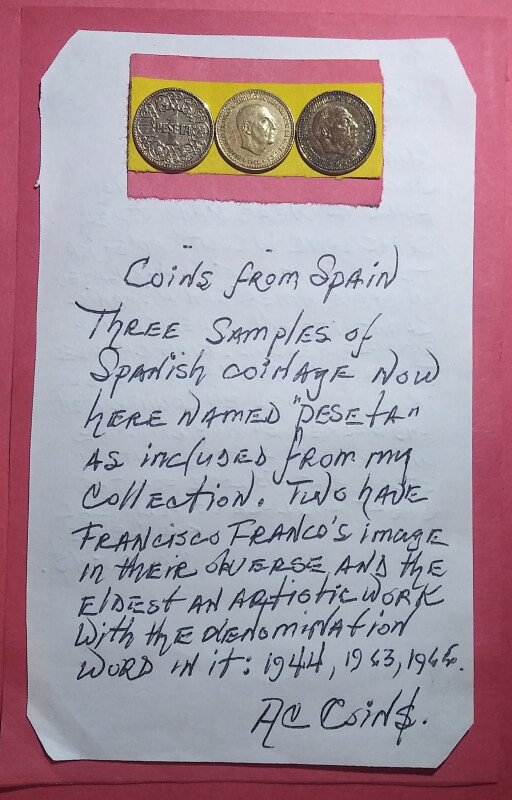 PESETA
Coins from Spain
Three samples of
Spanish coinage now
here named "peseta"
as included from my
collection. Two have
Francisco Franco's image
in their obverse and the
eldest an artistic work
with the denomination
word in it: 1944, 1953,
AC Coin$.